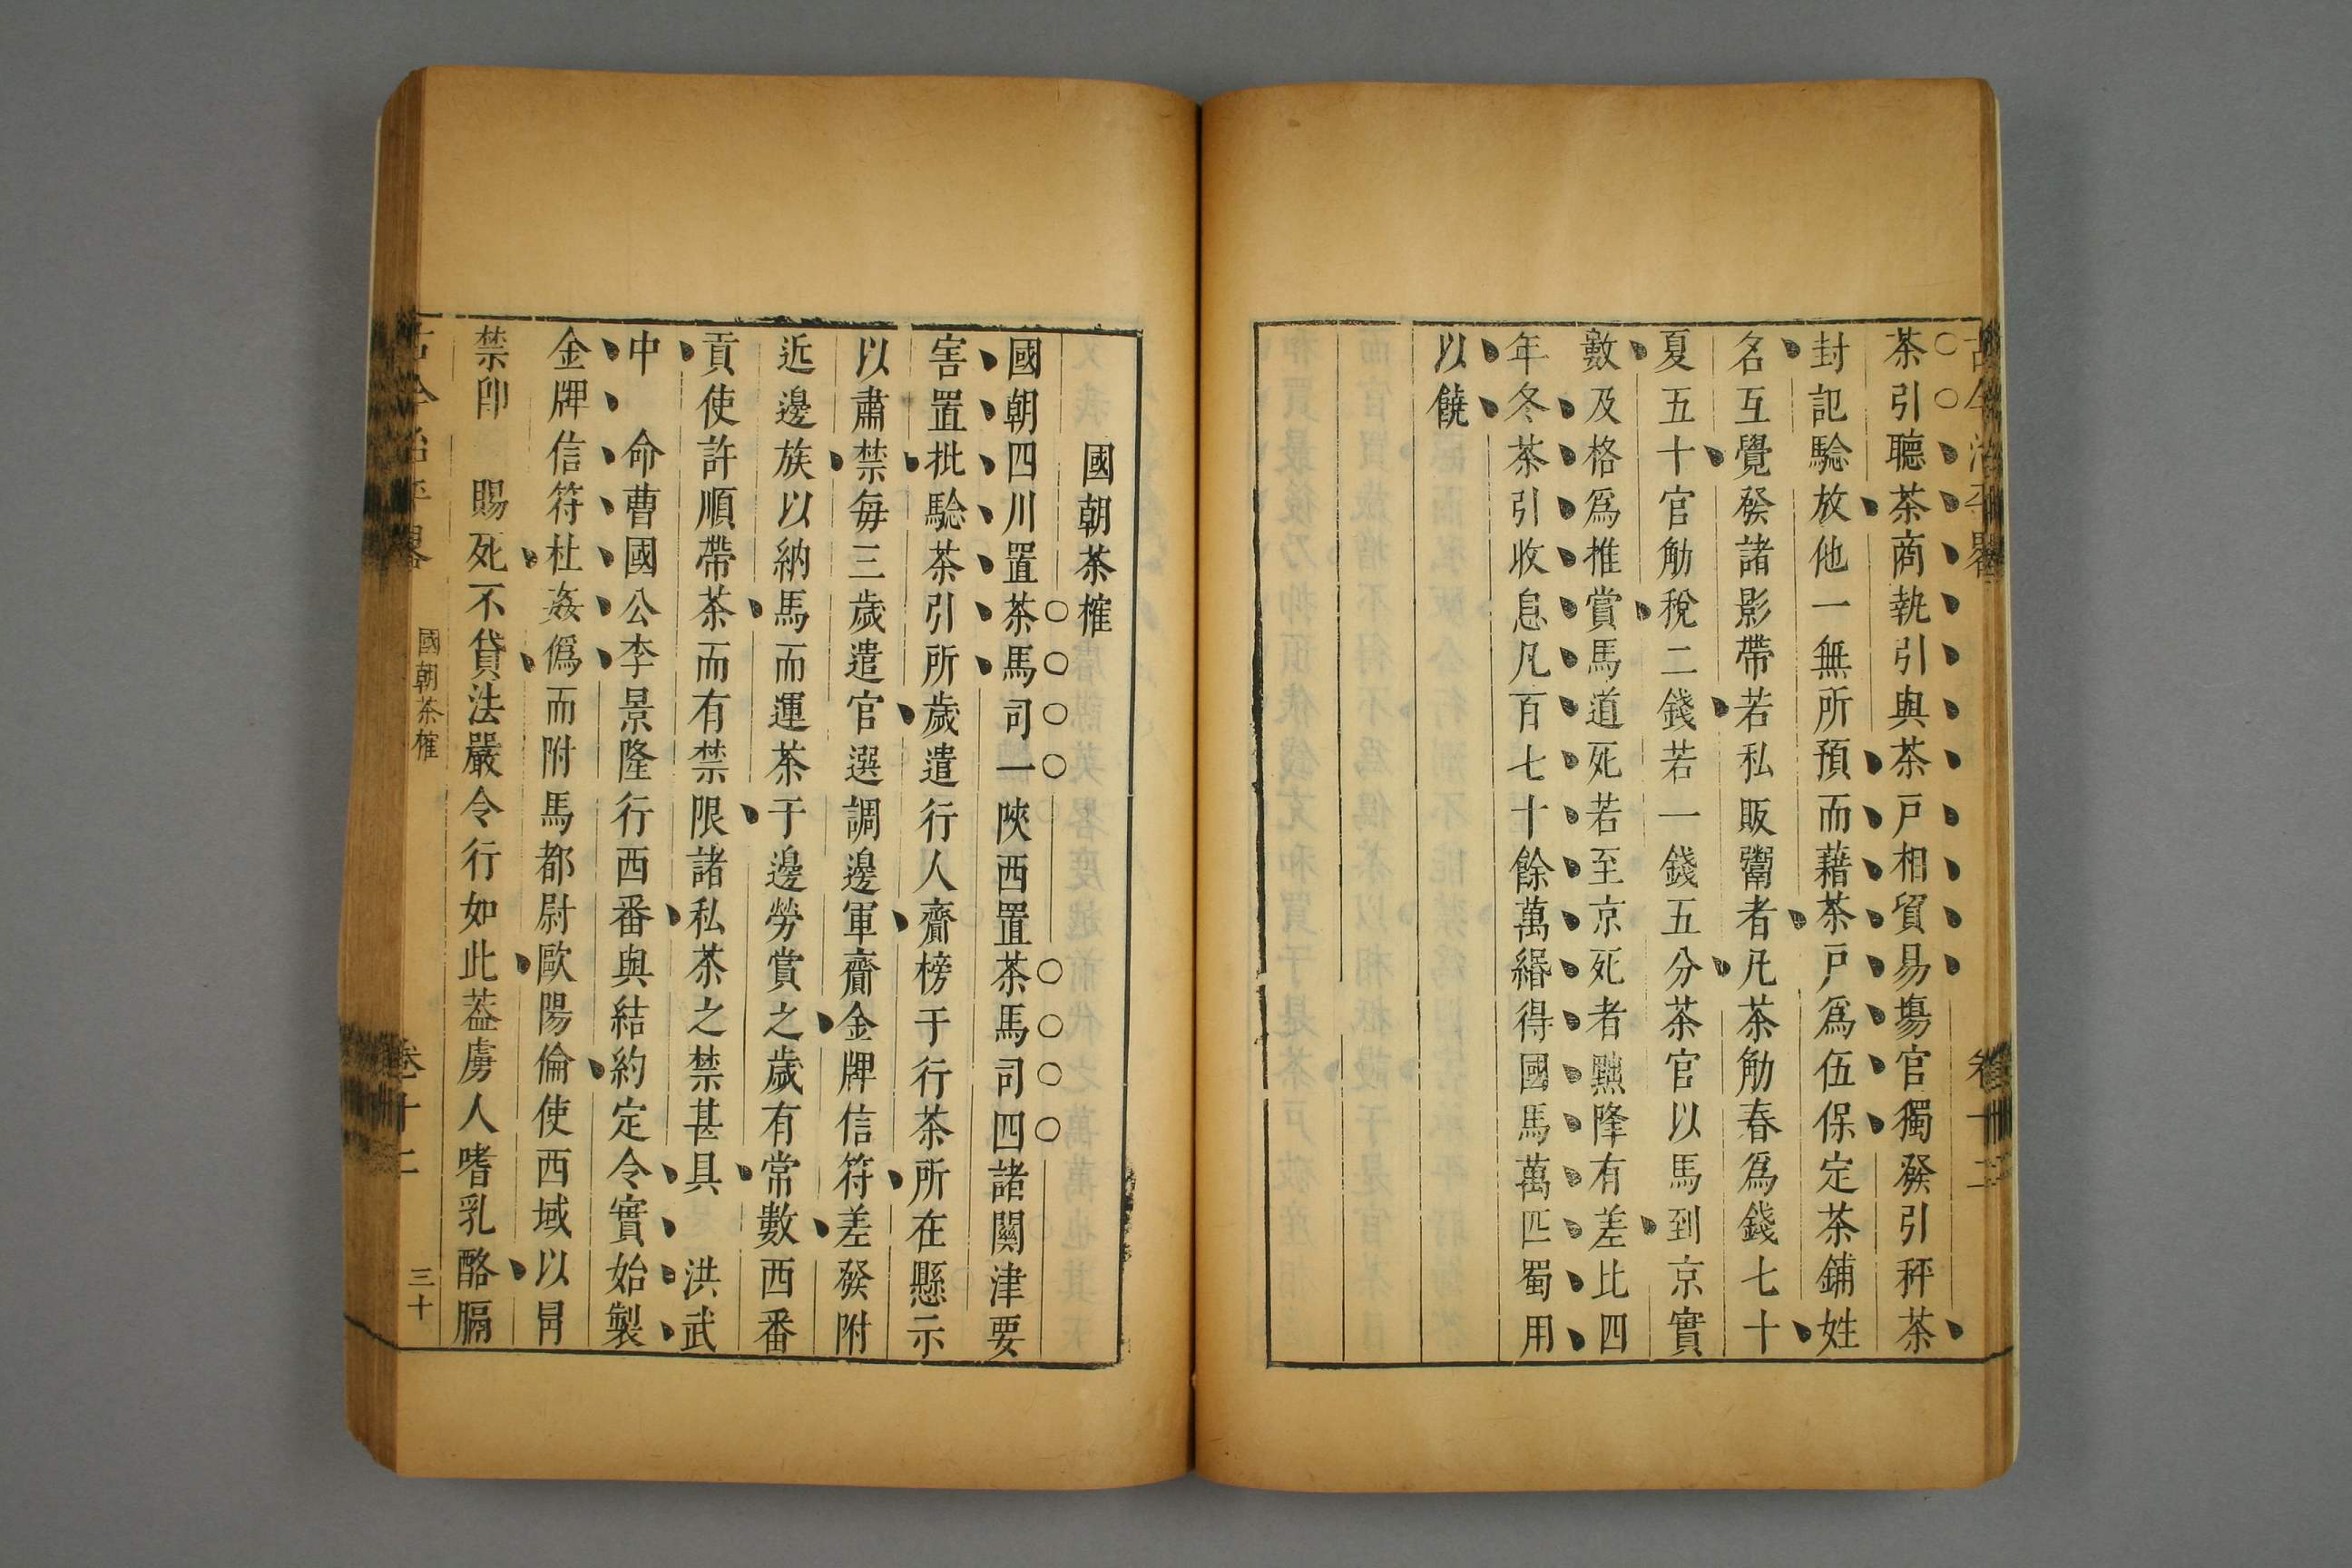 古今治平畧
卷十二
茶引聽茶商執引與茶戸相貿易塲官獨發引秤茶
封記驗放他一無所預而藉茶戸爲伍保定茶鋪姓
名互覺發諸影帶若私販鬻者凡茶觔春爲錢七十
夏五十官觔稅二錢若一錢五分茶官以馬到京實
數及格爲推賞馬道死若至京死者黜降有差比四
年冬茶引收息凡百七十餘萬緡得國馬萬匹蜀用
以饒
國朝茶榷
國朝四川置茶馬司一陝西置茶馬司四諸關津要
害置批驗茶引所歲遣行人齎榜于行茶所在懸示
以肅禁每三歲遣官選調邊軍齎金牌信符差發附
近邊族以納馬而運茶于邊勞賞之歲有常數西番
貢使許順帶茶而有禁限諸私茶之禁甚具 洪武
中 命曹國公李景隆行西番與結約定令實始製
金牌信符杜姦僞而附馬都尉歐陽倫使西域以冐
禁卽 賜死不貸法嚴令行如此葢虜人嗜乳酪膈
古今治平畧
國朝茶榷
卷十二
三十